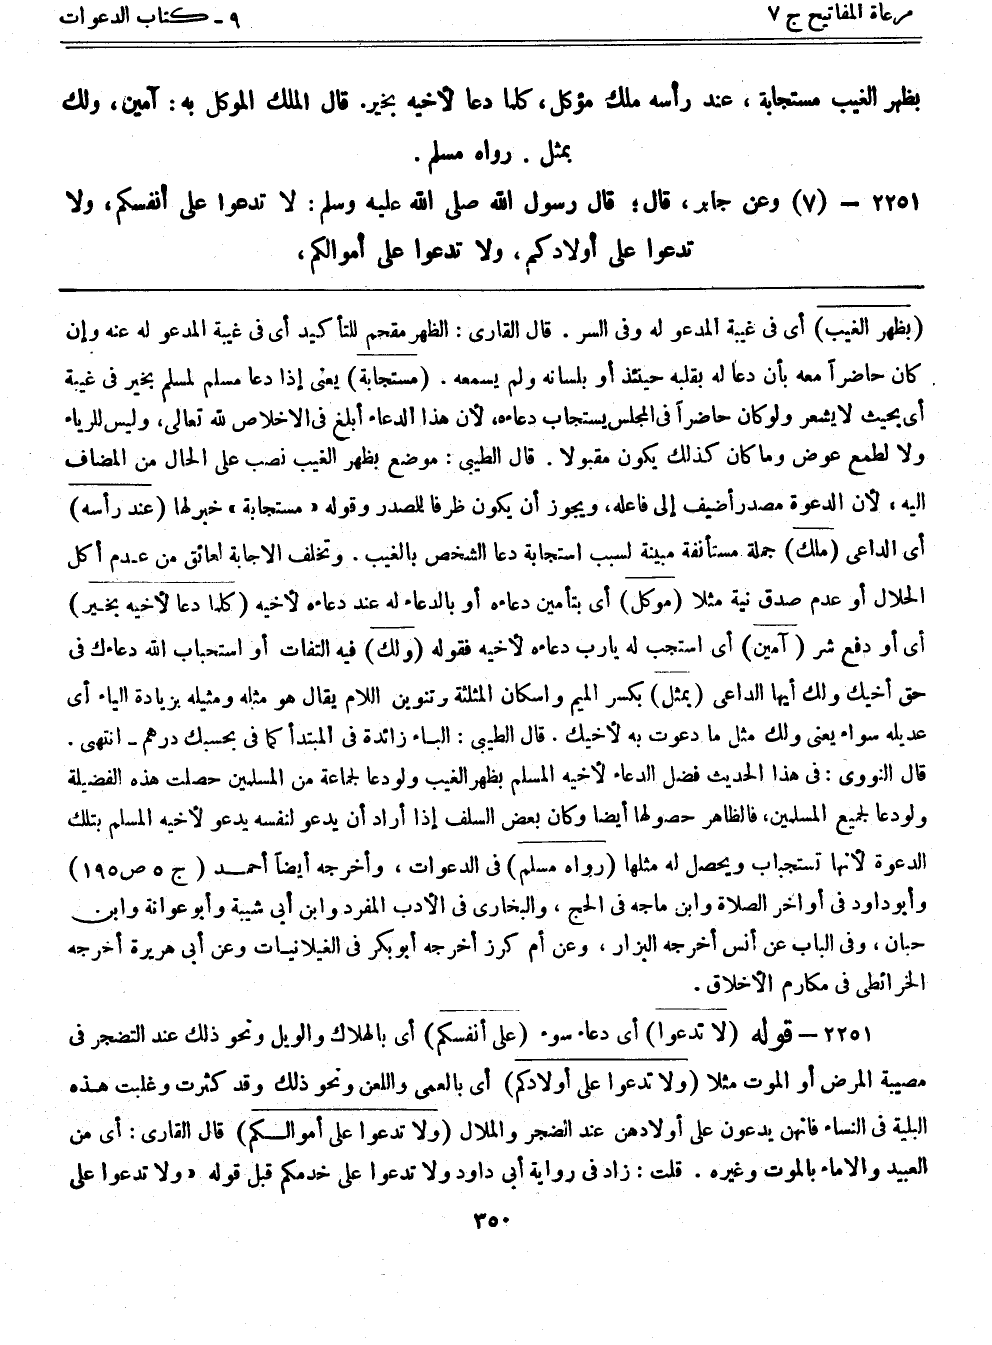 مرعاة المفاتيح ج ٧
٩ - كتاب الدعوات
بظهر الغيب مستجابة ، عند رأسه ملك مؤكل، كلما دعا لأخيه بخير. قال الملك الموكل به: آمين، ولك
بمثل . رواه مسلم .
٢٢٥١ – (٧) وعن جابر، قال؛ قال رسول الله صلى الله عليه وسلم: لا تدعوا على أنفسكم، ولا
تدعوا على أولادكم، ولا تدعوا على أموالكم،
(بظهر الغيب) أى فى غيبة المدعو له وفى السر . قال القارى : الظهر مقحم للتأكيد أى فى غيبة المدعو له عنه وإن
كان حاضراً معه بأن دعا له بقلبه حينئذ أو بلسانه ولم يسمعه . (مستجابة) يعنى إذا دعا مسلم لمسلم بخير فى غيبة
أى بحيث لايشعر ولوكان حاضراً فى المجلس يستجاب دعاءه، لأن هذا الدعاء أبلغ فى الاخلاص لله تعالى، وليس للرياء
ولا لطمع عوض وماكان كذلك يكون مقبولا . قال الطيبى : موضع بظهر الغيب نصب على الحال من المضاف
اليه ، لأن الدعوة مصدر أضيف إلى فاعله، ويجوز أن يكون ظرفا للصدر وقوله «مستجابة» خبرلها (عند رأسه)
أى الداعى (ملك) جملة مستأنفة مبينة لسبب استجابة دعا الشخص بالغيب . وتخلف الاجابة لعائق من عدم أكل
الحلال أو عدم صدق نية مثلا (موكل) أى بتأمين دعاءه أو بالدعاء له عند دعاءه لأخيه (كلما دعا لأخيه بخير)
أى أو دفع شر (آمين) أى استجب له يارب دعاءه لأخيه فقوله (ولك) فيه التفات أو استحباب الله دعاءك فى
حق أخيك ولك أيها الداعى (بمثل) بكسر الميم واسكان المثلثة وتنوين اللام يقال هو مثله ومثيله بزيادة الياء أى
عديله سواء يعنى ولك مثل ما دعوت به لأخيك . قال الطيبى : الباء زائدة فى المبتدأ كما فى بحسبك درهم ـ انتهى .
قال النووى : فى هذا الحديث فضل الدعاء لأخيه المسلم بظهر الغيب ولودعا لجماعة من المسلمين حصلت هذه الفضيلة
ولودعا لجميع المسلمين، فالظاهر حصولها أيضا وكان بعض السلف إذا أراد أن يدعو لنفسه يدعو لأخيه المسلم بتلك
الدعوة لأنها تستجاب ويحصل له مثلها (رواه مسلم) فى الدعوات ، وأخرجه أيضاً أحمد ( ج ٥ ص١٩٥)
وأبوداود فى أواخر الصلاة وابن ماجه فى الحج ، والبخارى فى الأدب المفرد وابن أبى شيبة وأبوعوانة وابن
حبان ، وفى الباب عن أنس أخرجه البزار ، وعن أم كرز أخرجه أبوبكر فى الغيلانيات وعن أبى هريرة أخرجه
الخرائطى فى مكارم الأخلاق .
٢٢٥١ – قوله (لا تدعوا) أى دعاء سوء (على أنفسكم) أى بالهلاك والويل ونحو ذلك عند التضجر فى
مصيبة المرض أو الموت مثلا (ولا تدعوا على أولادكم) أى بالعمى واللعن ونحو ذلك وقد كثرت وغلبت هذه
البلية فى النساء فانهن يدعون على أولادهن عند الضجر والملال (ولا تدعوا على أموالكم) قال القارى : أى من
العبيد والاماء بالموت وغيره . قلت : زاد فى رواية أبى داود ولا تدعوا على خدمكم قبل قوله «ولا تدعوا على
٣٥٠